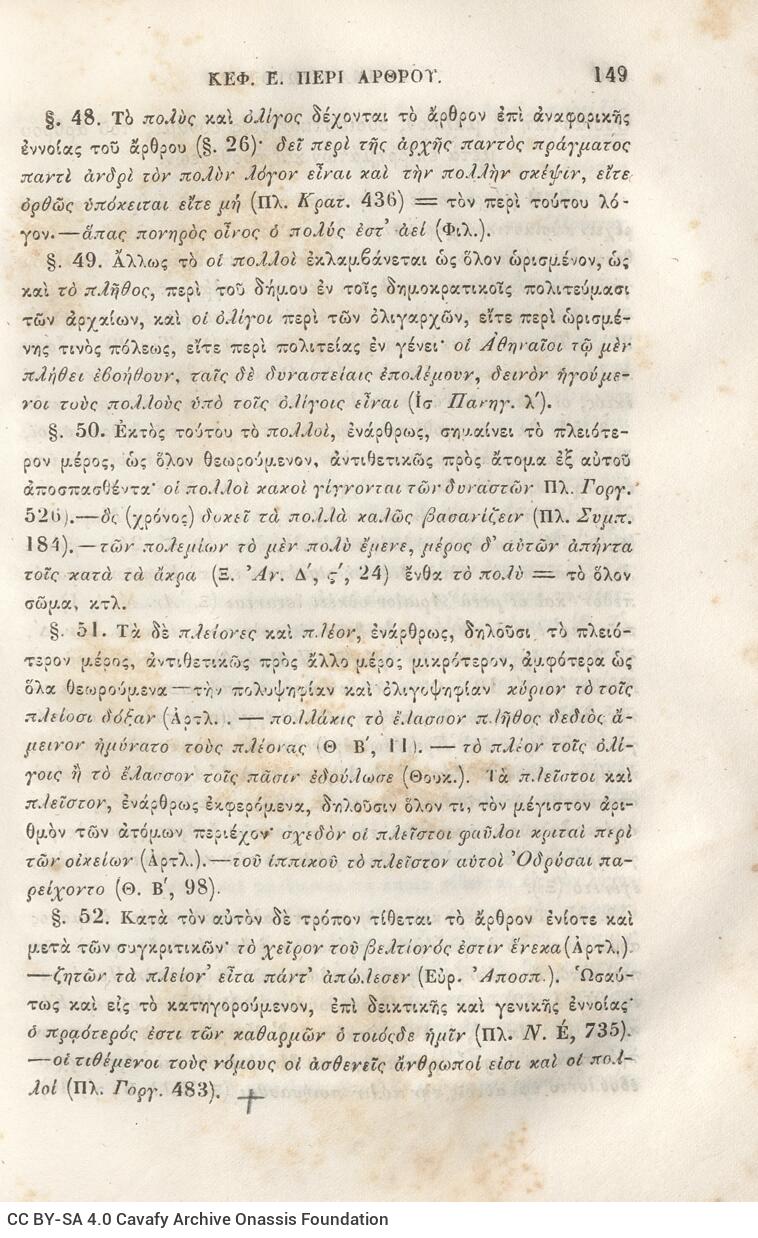 ΚΕΦ. Ε. ΠΕΡΙ ΑΡΘΡΟΥ. 149
§. 48. Τὸ πολὺς καὶ ὀλίγος δέχονται τὸ ἄρθρον ἐπὶ ἀναφορικῆς
ἐννοίας τοῦ ἄρθρου (§. 26)· δεῖ περὶ τῆς ἀρχῆς παντὸς πράγματος
παντὶ ἀνδρὶ τὸν πολὺν λόγον εἶναι καὶ τὴν πολλὴν σκέψιν, εἴτε
ὀρθῶς ὑπόκειται εἴτε μή (Πλ. Κρατ. 436) = τὸν περὶ τούτου λό-
γον.—ἅπας πονηρὸς οἶνος ὁ πολύς ἐστ' ἀεί (Φιλ.).
§. 49. Ἄλλως τὸ οἱ πολλοὶ ἐκλαμβάνεται ὡς ὅλον ὡρισμένον, ὡς
καὶ τὸ πλῆθος, περὶ τοῦ δήμου ἐν τοῖς δημοκρατικοῖς πολιτεύμασι
τῶν ἀρχαίων, καὶ οἱ ὀλίγοι περὶ τῶν ὀλιγαρχῶν, εἴτε περὶ ὡρισμέ-
νης τινὸς πόλεως, εἴτε περὶ πολιτείας ἐν γένει· οἱ Ἀθηναῖοι τῷ μὲν
πλήθει ἐβοήθουν, ταῖς δὲ δυναστείαις ἐπολέμουν, δεινὸν ἡγούμε-
νοι τοὺς πολλοὺς ὑπὸ τοῖς ὀλίγοις εἶναι (Ἰσ Πανηγ. λ').
§. 50. Ἐκτὸς τούτου τὸ πολλοὶ, ἐνάρθρως, σημαίνει τὸ πλειότε-
ρον μέρος, ὡς ὅλον θεωρούμενον, ἀντιθετικῶς πρὸς ἄτομα ἐξ αὐτοῦ
ἀποσπασθέντα· οἱ πολλοὶ κακοὶ γίγνονται τῶν δυναστῶν Πλ. Γοργ.
526).—ὃς (χρόνος) δοκεῖ τὰ πολλὰ καλῶς βασανίζειν (Πλ. Συμπ.
184).—τῶν πολεμίων τὸ μὲν πολὺ ἔμενε, μέρος δ' αὐτῶν ἀπήντα
τοῖς κατὰ τὰ ἄκρα (Ξ. Ἀν. Δ', ς', 24) ἔνθα τὸ πολὺ = τὸ ὅλον
σῶμα, κτλ.
§. 51. Τὰ δὲ πλείονες καὶ πλέον, ἐνάρθρως, δηλοῦσι τὸ πλειό-
τερον μέρος, ἀντιθετικῶς πρὸς ἄλλο μέρος μικρότερον, ἀμφότερα ὡς
ὅλα θεωρούμενα—τὴν πολυψηφίαν καὶ ὀλιγοψηφίαν κύριον τὸ τοῖς
πλείοσι δόξαν (Ἀρτλ. . — πολλάκις τὸ ἔλασσον πλῆθος δεδιὸς ἄ-
μεινον ἠμύνατο τοὺς πλέονας (Θ Β', 11). — τὸ πλέον τοῖς ὀλί-
γοις ἢ τὸ ἔλασσον τοῖς πᾶσιν ἐδούλωσε (Θουκ.). Τὰ πλεῖστοι καὶ
πλεῖστον, ἐνάρθρως ἐκφερόμενα, δηλοῦσιν ὅλον τι, τὸν μέγιστον ἀρι-
θμὸν τῶν ἀτόμων περιέχον· σχεδὸν οἱ πλεῖστοι φαῦλοι κριταὶ περὶ
τῶν οἰκείων (Ἀρτλ.).—τοῦ ἱππικοῦ τὸ πλεῖστον αὐτοὶ Ὀδρύσαι πα-
ρείχοντο (Θ. Β', 98).
§. 52. Κατὰ τὸν αὐτὸν δὲ τρόπον τίθεται τὸ ἄρθρον ἐνίοτε καὶ
μετὰ τῶν συγκριτικῶν· τὸ χεῖρον τοῦ βελτίονός ἐστιν ἕνεκα (Ἀρτλ.).
—ζητῶν τὰ πλείον' εἶτα πάντ' ἀπώλεσεν (Εὐρ. Ἀποσπ.). Ὡσαύ-
τως καὶ εἰς τὸ κατηγορούμενον, ἐπὶ δεικτικῆς καὶ γενικῆς ἐννοίας·
ὁ πρᾳότερός ἐστι τῶν καθαρμῶν ὁ τοιόςδε ἡμῖν (Πλ. Ν. Έ, 735).
—οἱ τιθέμενοι τοὺς νόμους οἱ ἀσθενεῖς ἄνθρωποί εἰσι καὶ οἱ πολ-
λοί (Πλ. Γοργ. 483). +
CC BY-SA 4.0 Cavafy Archive Onassis Foundation